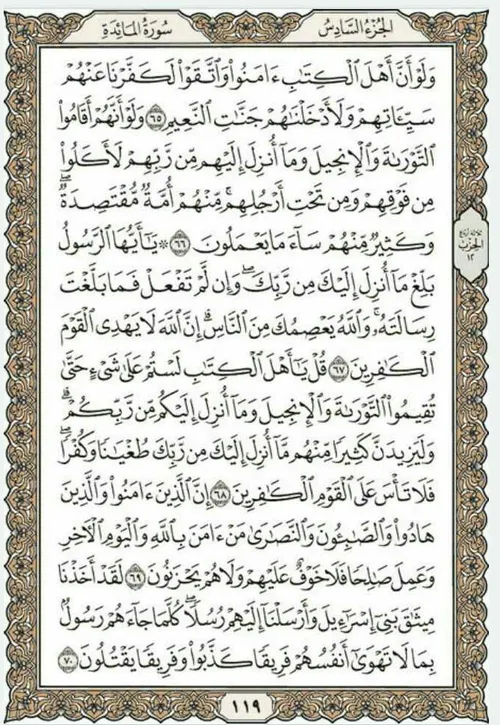 الجزء السادس
سورة المائدة
وَلَوْ أَنَّ أَهْلَ ٱلْكِتَٰبِ ءَامَنُوا۟ وَٱتَّقَوْا۟ لَكَفَّرْنَا عَنْهُمْ
سَيِّـَٔاتِهِمْ وَلَأَدْخَلْنَٰهُمْ جَنَّٰتِ ٱلنَّعِيمِ ٦٥ وَلَوْ أَنَّهُمْ أَقَامُوا۟
ٱلتَّوْرَىٰةَ وَٱلْإِنجِيلَ وَمَآ أُنزِلَ إِلَيْهِم مِّن رَّبِّهِمْ لَأَكَلُوا۟
مِن فَوْقِهِمْ وَمِن تَحْتِ أَرْجُلِهِم ۚ مِّنْهُمْ أُمَّةٌ مُّقْتَصِدَةٌ ۖ
وَكَثِيرٌ مِّنْهُمْ سَآءَ مَا يَعْمَلُونَ ٦٦ ۞ يَٰٓأَيُّهَا ٱلرَّسُولُ
بَلِّغْ مَآ أُنزِلَ إِلَيْكَ مِن رَّبِّكَ ۖ وَإِن لَّمْ تَفْعَلْ فَمَا بَلَّغْتَ
رِسَالَتَهُۥ ۚ وَٱللَّهُ يَعْصِمُكَ مِنَ ٱلنَّاسِ ۗ إِنَّ ٱللَّهَ لَا يَهْدِى ٱلْقَوْمَ
ٱلْكَٰفِرِينَ ٦٧ قُلْ يَٰٓأَهْلَ ٱلْكِتَٰبِ لَسْتُمْ عَلَىٰ شَىْءٍ حَتَّىٰ
تُقِيمُوا۟ ٱلتَّوْرَىٰةَ وَٱلْإِنجِيلَ وَمَآ أُنزِلَ إِلَيْكُم مِّن رَّبِّكُمْ ۗ
وَلَيَزِيدَنَّ كَثِيرًا مِّنْهُم مَّآ أُنزِلَ إِلَيْكَ مِن رَّبِّكَ طُغْيَٰنًا وَكُفْرًا ۖ
فَلَا تَأْسَ عَلَى ٱلْقَوْمِ ٱلْكَٰفِرِينَ ٦٨ إِنَّ ٱلَّذِينَ ءَامَنُوا۟ وَٱلَّذِينَ
هَادُوا۟ وَٱلصَّٰبِـُٔونَ وَٱلنَّصَٰرَىٰ مَنْ ءَامَنَ بِٱللَّهِ وَٱلْيَوْمِ ٱلْءَاخِرِ
وَعَمِلَ صَٰلِحًا فَلَا خَوْفٌ عَلَيْهِمْ وَلَا هُمْ يَحْزَنُونَ ٦٩ لَقَدْ أَخَذْنَا
مِيثَٰقَ بَنِىٓ إِسْرَٰٓءِيلَ وَأَرْسَلْنَآ إِلَيْهِمْ رُسُلًا ۖ كُلَّمَا جَآءَهُمْ رَسُولٌۢ
بِمَا لَا تَهْوَىٰٓ أَنفُسُهُمْ فَرِيقًا كَذَّبُوا۟ وَفَرِيقًا يَقْتُلُونَ ٧٠
ثلاثة أرباع
الحزب
١٢
١١٩